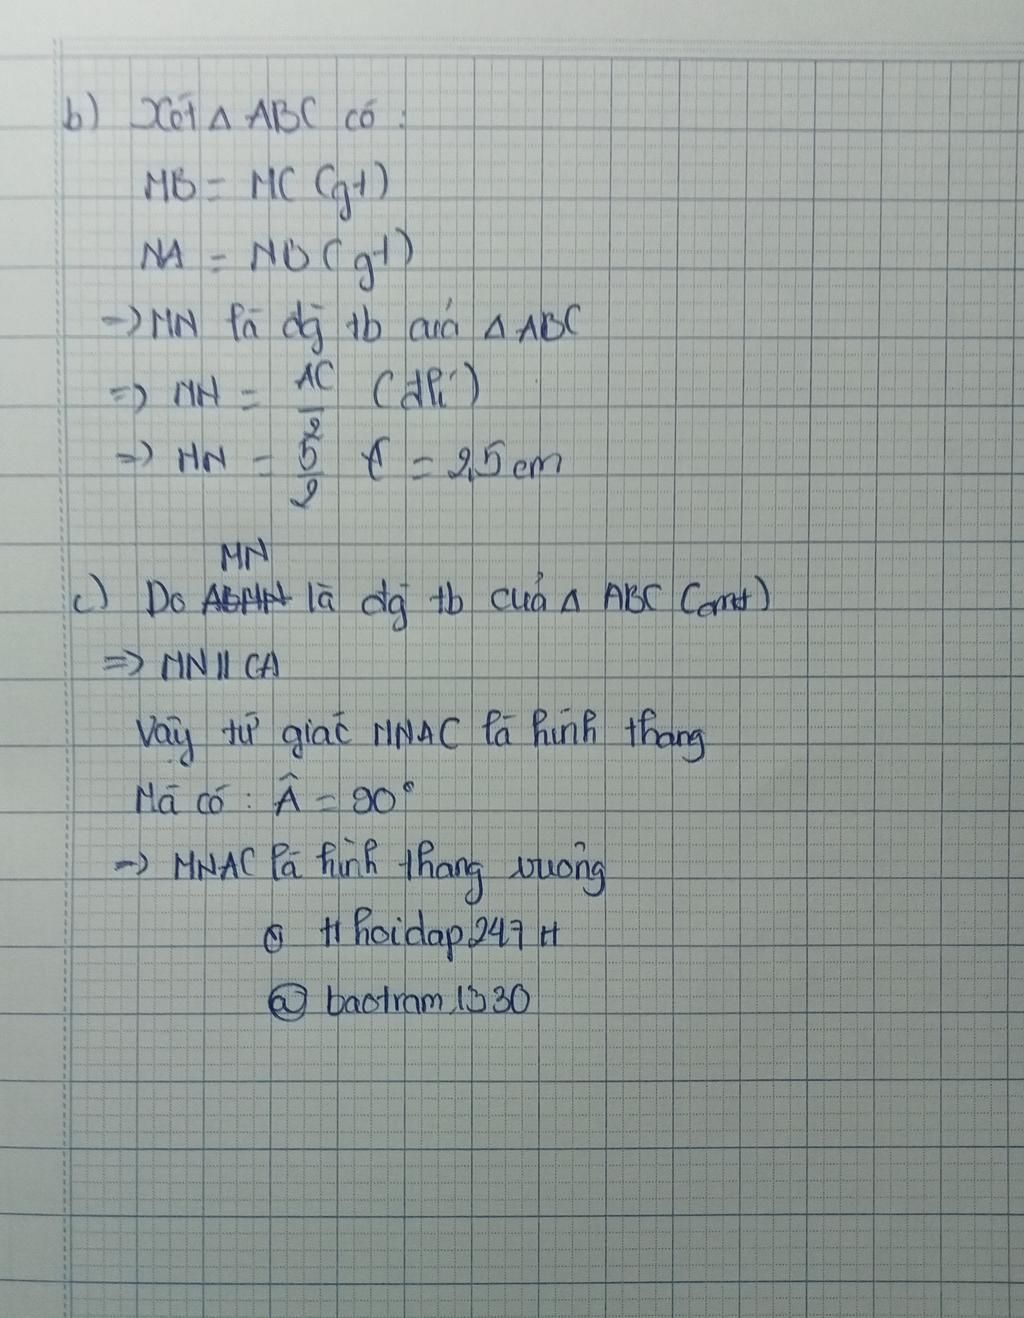 b) Xét Δ ABC có :
MB = MC (gt)
NA = NB (gt)
=> MN là đg tb của Δ ABC
=> MN = AC/2 (đlí)
=> MN = 5/2 = 2,5 cm
MN
c) Do là đg tb của Δ ABC (cmt)
=> MN // CA
Vậy tứ giác MNAC là hình thang
Mà có : Â = 90°
=> MNAC là hình thang vuông
# hoidap247 #
@ baotram,1330